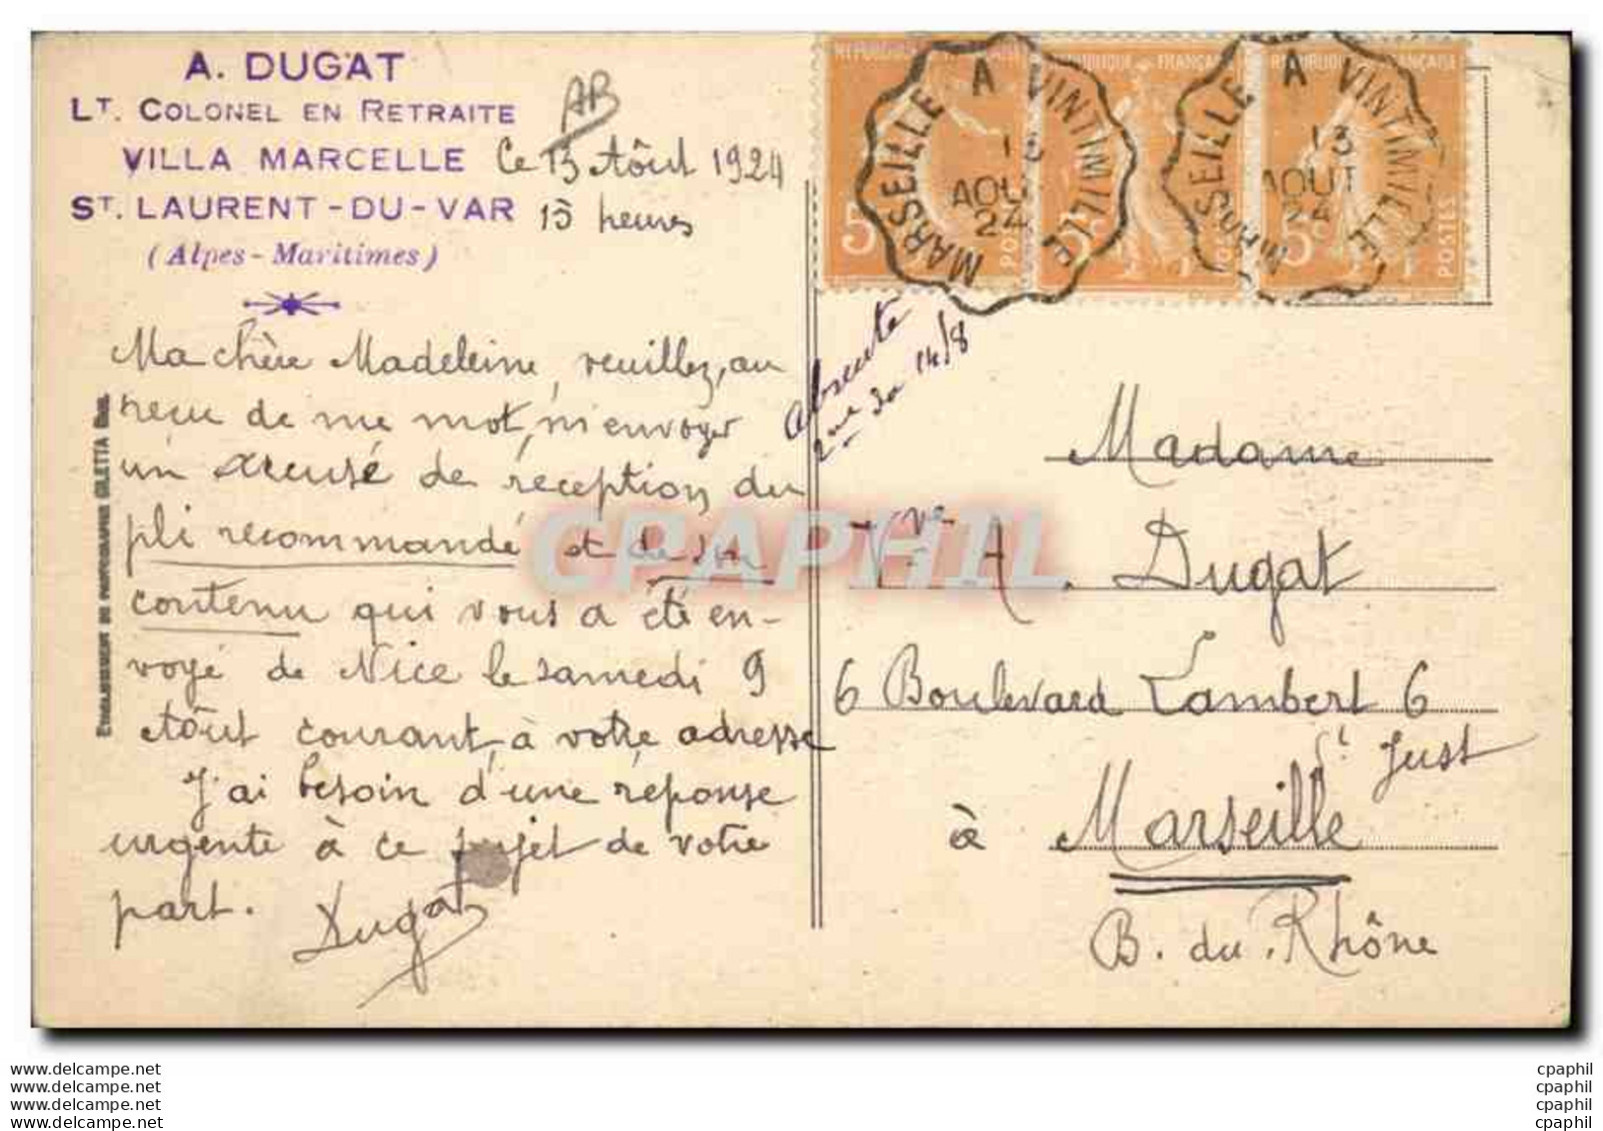 A. DUGAT
LT. COLONEL EN RETRAITE
VILLA MARCELLE
ST. LAURENT-DU-VAR
(Alpes-Maritimes)
AB
Ce 13 Aôut 1924
15 heures
Ma chère Madeleine, veuillez, au
reçu de me mot, m'envoyer
un accusé de réception du
pli recommandé et de son
contenu qui vous a été en-
voyé de Nice le samedi 9
Aôut courant, à votre adresse
J'ai besoin d'une réponse
urgente à ce sujet de votre
part.
Dugat
ETABLISSEMENT DU PHOTOGRAPHE GILETTA
REPUBLIQUE FRANÇAISE
5c POSTES
MARSEILLE A VINTIMILLE
13
AOUT
24
REPUBLIQUE FRANÇAISE
5c
MARSEILLE A VINTIMILLE
13
AOUT
24
REPUBLIQUE FRANÇAISE
5c POSTES
absente
14/8
Madame
Vve A. Dugat
6 Boulevard Lambert 6
St Just
à Marseille
B. du Rhône
CPAPHIL
www.delcampe.net
www.delcampe.net
www.delcampe.net
www.delcampe.net
cpaphil
cpaphil
cpaphil
cpaphil